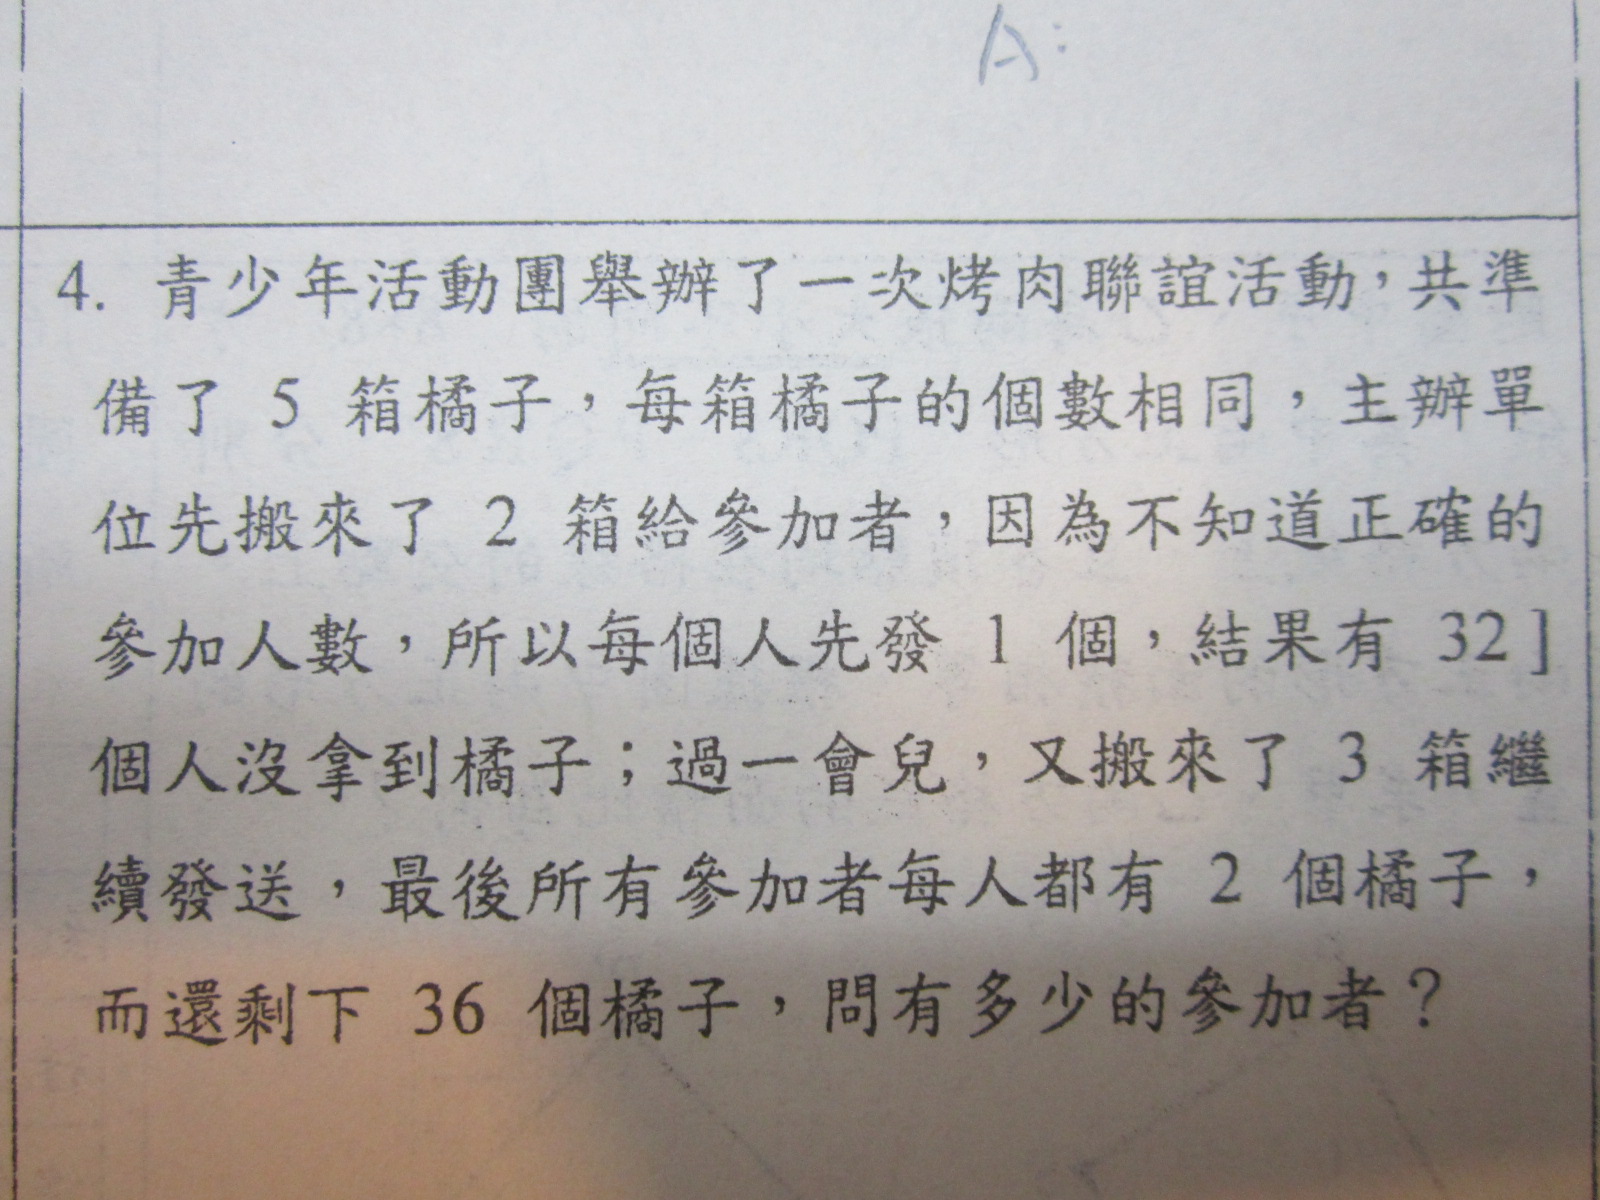 A:
4. 青少年活動團舉辦了一次烤肉聯誼活動，共準
備了 5 箱橘子，每箱橘子的個數相同，主辦單
位先搬來了 2 箱給參加者，因為不知道正確的
參加人數，所以每個人先發 1 個，結果有 32 ]
個人沒拿到橘子；過一會兒，又搬來了 3 箱繼
續發送，最後所有參加者每人都有 2 個橘子，
而還剩下 36 個橘子，問有多少的參加者？